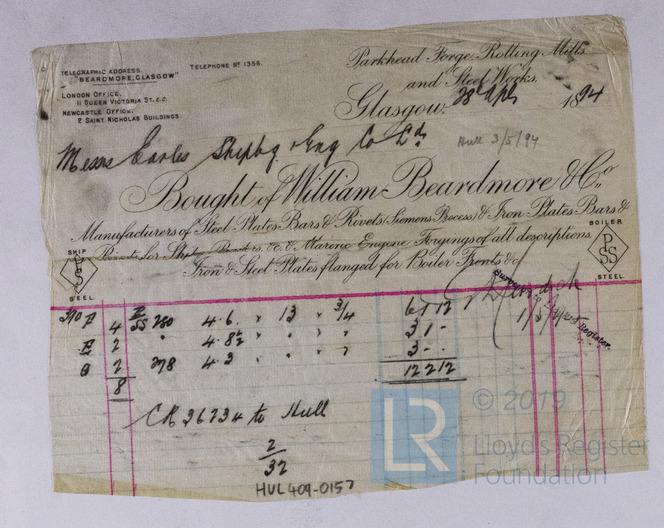 TELEGRAPHIC ADDRESS,
"BEARDMORE, GLASGOW"
TELEPHONE Nº 1356.
LONDON OFFICE,
11 QUEEN VICTORIA ST. E.C.
NEWCASTLE OFFICE,
2 SAINT NICHOLAS BUILDINGS.
Parkhead Forge, Rolling Mills
and Steel Works,
Glasgow, 28 Apl 1894
Hull 3/5/94
Messrs Earles Shipbg & Eng Co Ld
Bought of William Beardmore & Co.,
Manufacturers of Steel Plates Bars & Rivets (Siemens Process) & Iron Plates Bars &
Rivets for Ship
&c. & Marine Engine Forgings of all descriptions
Iron & Steel Plates flanged for Boiler Fronts &c
SHIP
PSS
STEEL.
BOILER
PSS
STEEL
4 SS 280 4.6 " 13 " 3/4 6 17 12
2 " 4.8½ " " " 3 1 -
2 278 4.3 " " " 3 - -
8 12 2 12
CR 26734 to Hull
2
37
1/5/94
HUL409-0157
LR
© 2019
Lloyd's Register
Foundation